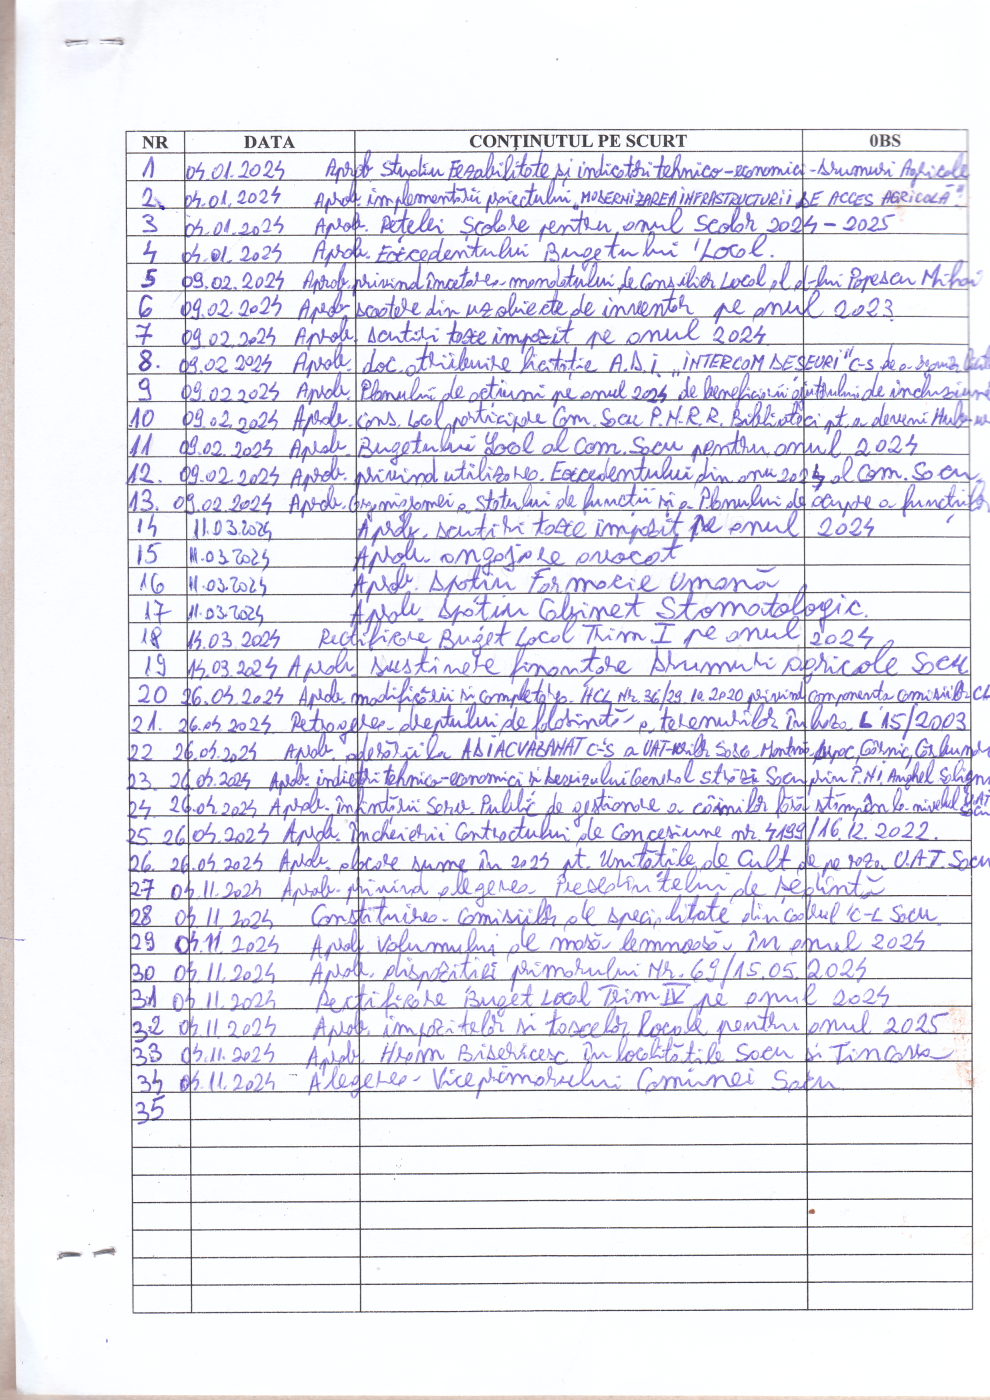 NR DATA CONȚINUTUL PE SCURT 0BS
1 04.01.2024 Aprob Studiu Fezabilitate și indicatori tehnico-economici - drumuri Agricole
2. 04.01.2024 Aprob. implementării proiectului „MODERNIZAREA INFRASTRUCTURII DE ACCES AGRICOLĂ"
3 04.01.2024 Aprob. Rețelei Școlare pentru anul Școlar 2024-2025
4 04.01.2024 Aprob. Excedentului Bugetului Local.
5 09.02.2024 Aprob. privind încetarea mandatului de Consilier Local al d-lui Popescu Mihai
6 09.02.2024 Aprob. scoatere din uz obiecte de inventar pe anul 2023
7 09.02.2024 Aprob. scutiri taxe impozit pe anul 2024
8. 09.02 2024 Aprob. doc. atribuire licitație A.D.I „INTERCOM DESEURI" C-S
9 09.02.2024 Aprob. Planului de acțiuni pe anul 2024 de beneficiarii ajutorului de incluziune
10 09.02.2024 Aprob. cons. Local participare Com. Socu P.N.R.R. Biblioteci pt. a deveni Hub-uri
11 09.02.2024 Aprob. Bugetului Local al Com. Socu pentru anul 2024
12. 09.02.2024 Aprob. privind utilizarea Excedentului din anu 2023 al Com. Socu
13. 09.02.2024 Aprob. Organigramei a Statului de funcții și a Planului de ocupare a funcțiilor
14 11.03.2024 Aprob. scutiri taxe impozit pe anul 2024
15 11.03.2024 Aprob. angajare avocat
16 11.03.2024 Aprob. spațiu Farmacie Umană
17 11.03.2024 Aprob. spațiu Cabinet Stomatologic.
18 14.03.2024 Rectificare Buget Local Trim I pe anul 2024
19 14.03.2024 Aprob. sustinere finantare drumuri agricole Socu
20 26.04.2024 Aprob. modificării și completarea HCL Nr. 36/29.10.2020 privind componenta comisiilor CL
21. 26.04.2024 Retragerea dreptului de folosință a terenurilor în baza L 15/2003
22 26.04.2024 Aprob. aderării la ADIACVABANAT C-S a UAT-urilor
23. 26.04.2024 Aprob. indicatori tehnico-economici și devizului General străzi Socu prin P.N.I. Anghel Saligny
24. 26.04.2024 Aprob. înființării Serv. Public de gestionare a câinilor fără stăpân la nivelul UAT Socu
25. 26.04.2024 Aprob. încheierii Contractului de Concesiune nr. 4199/16.12.2022.
26. 26.04.2024 Aprob. alocare sume în 2024 pt. Unitățile de Cult de pe raza U.A.T. Socu
27 04.11.2024 Aprob. privind alegerea Presedintelui de sedintă
28 04.11.2024 Constituirea comisiilor de specialitate din cadrul C-L Socu
29 04.11.2024 Aprob. volumului de masă lemnoasă în anul 2024
30 04.11.2024 Aprob. dispozitiei primarului Nr. 69/15.05.2024
31 04.11.2024 Rectificare Buget Local Trim IV pe anul 2024
32 04.11.2024 Aprob. impozitelor si taxelor locale pentru anul 2025
33 04.11.2024 Aprob. Hram Bisericesc în localitățile Socu și Tincova
34 04.11.2024 Alegerea Viceprimarului Comunei Socu
35